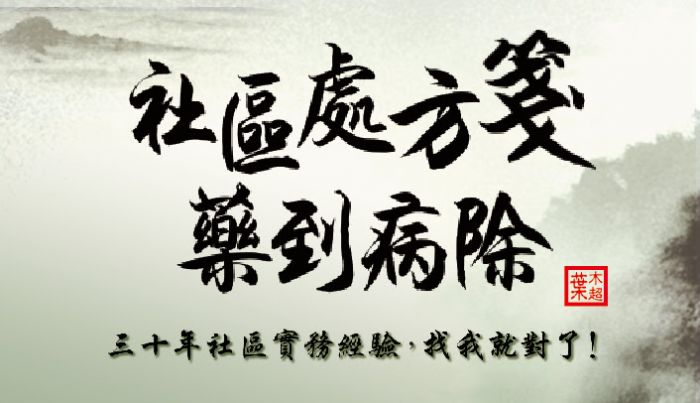 社區處方箋
藥到病除
葉木超
三十年社區實務經驗，找我就對了!